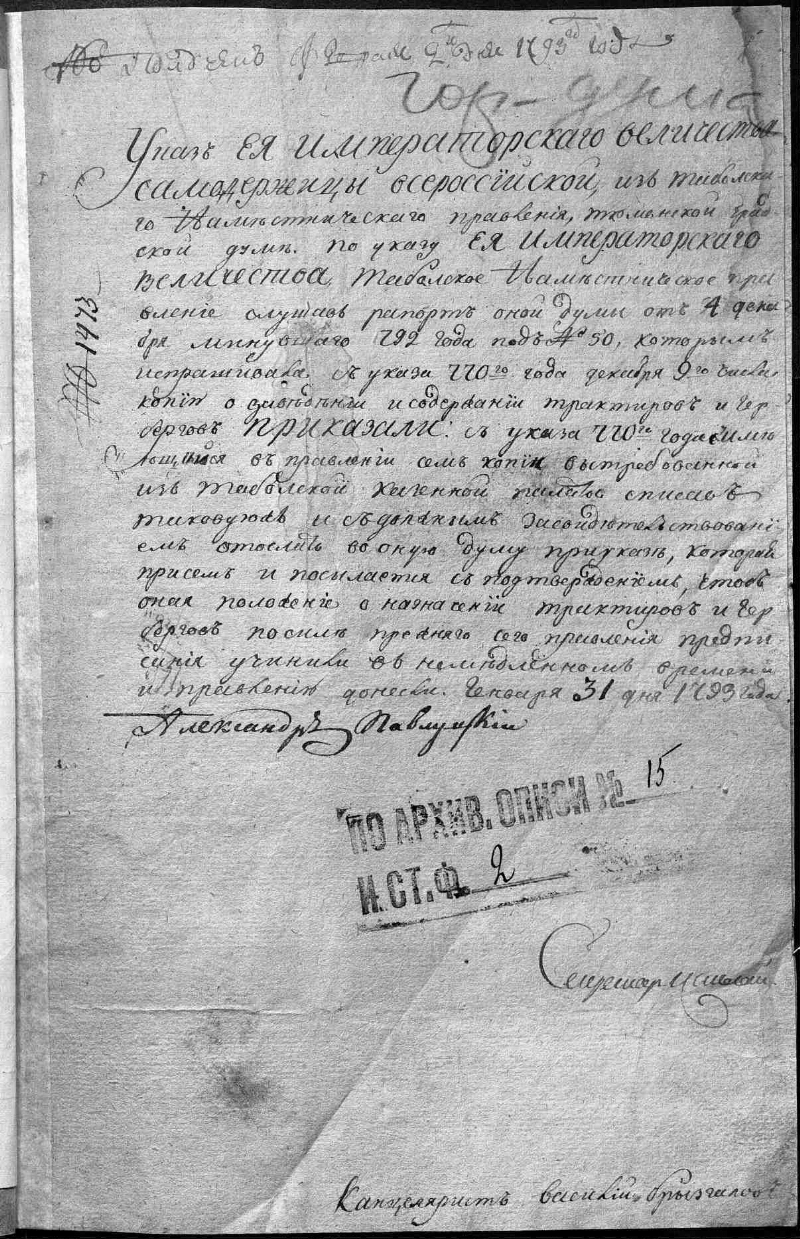 Февраля 2 дня 1793 году
Гор-дума
Указъ ЕЯ ИМПЕРАТОРСКАГО ВЕЛИЧЕСТВА
САМОДЕРЖИЦЫ ВСЕРОССІЙСКОЙ, изъ таболска-
го Намѣстническаго правленія, тюменской град-
ской думѣ. по указу ЕЯ ИМПЕРАТОРСКАГО
ВЕЛИЧЕСТВА, Таболское Намѣстническое пра-
вленіе слушавъ рапортъ оной думы отъ 4 дека-
бря минувшаго 792 года подъ № 50, которымъ
испрашивала съ указа 770го года декабря 9го числа
копіи о заведѣніи и содержаніи трактировъ и гер-
берговъ ПРИКАЗАЛИ: съ указа 770го года съимѣ-
ющейся въ правленіи семъ копіи вытребованной
изъ таболской казенной палаты списавъ
таковуюжъ и съ должнымъ засвидѣтельствовані-
емъ отослать во оную думу приуказѣ, которая
присемъ и посылается съ подтвержденіемъ, чтобъ
оная положеніе о назначеніи трактировъ и гер-
берговъ посилѣ прежняго сего правленія предпи-
санія учиня въ немѣдленномъ времени
и правленію донесла. Генваря 31 дня 1793 года
Александръ Павлуцкій
№ 1973
ПО АРХИВ. ОПИСИ № 15
И. СТ. Ф. 2
Секретарь
Канцеляристъ Василій Брызгаловъ